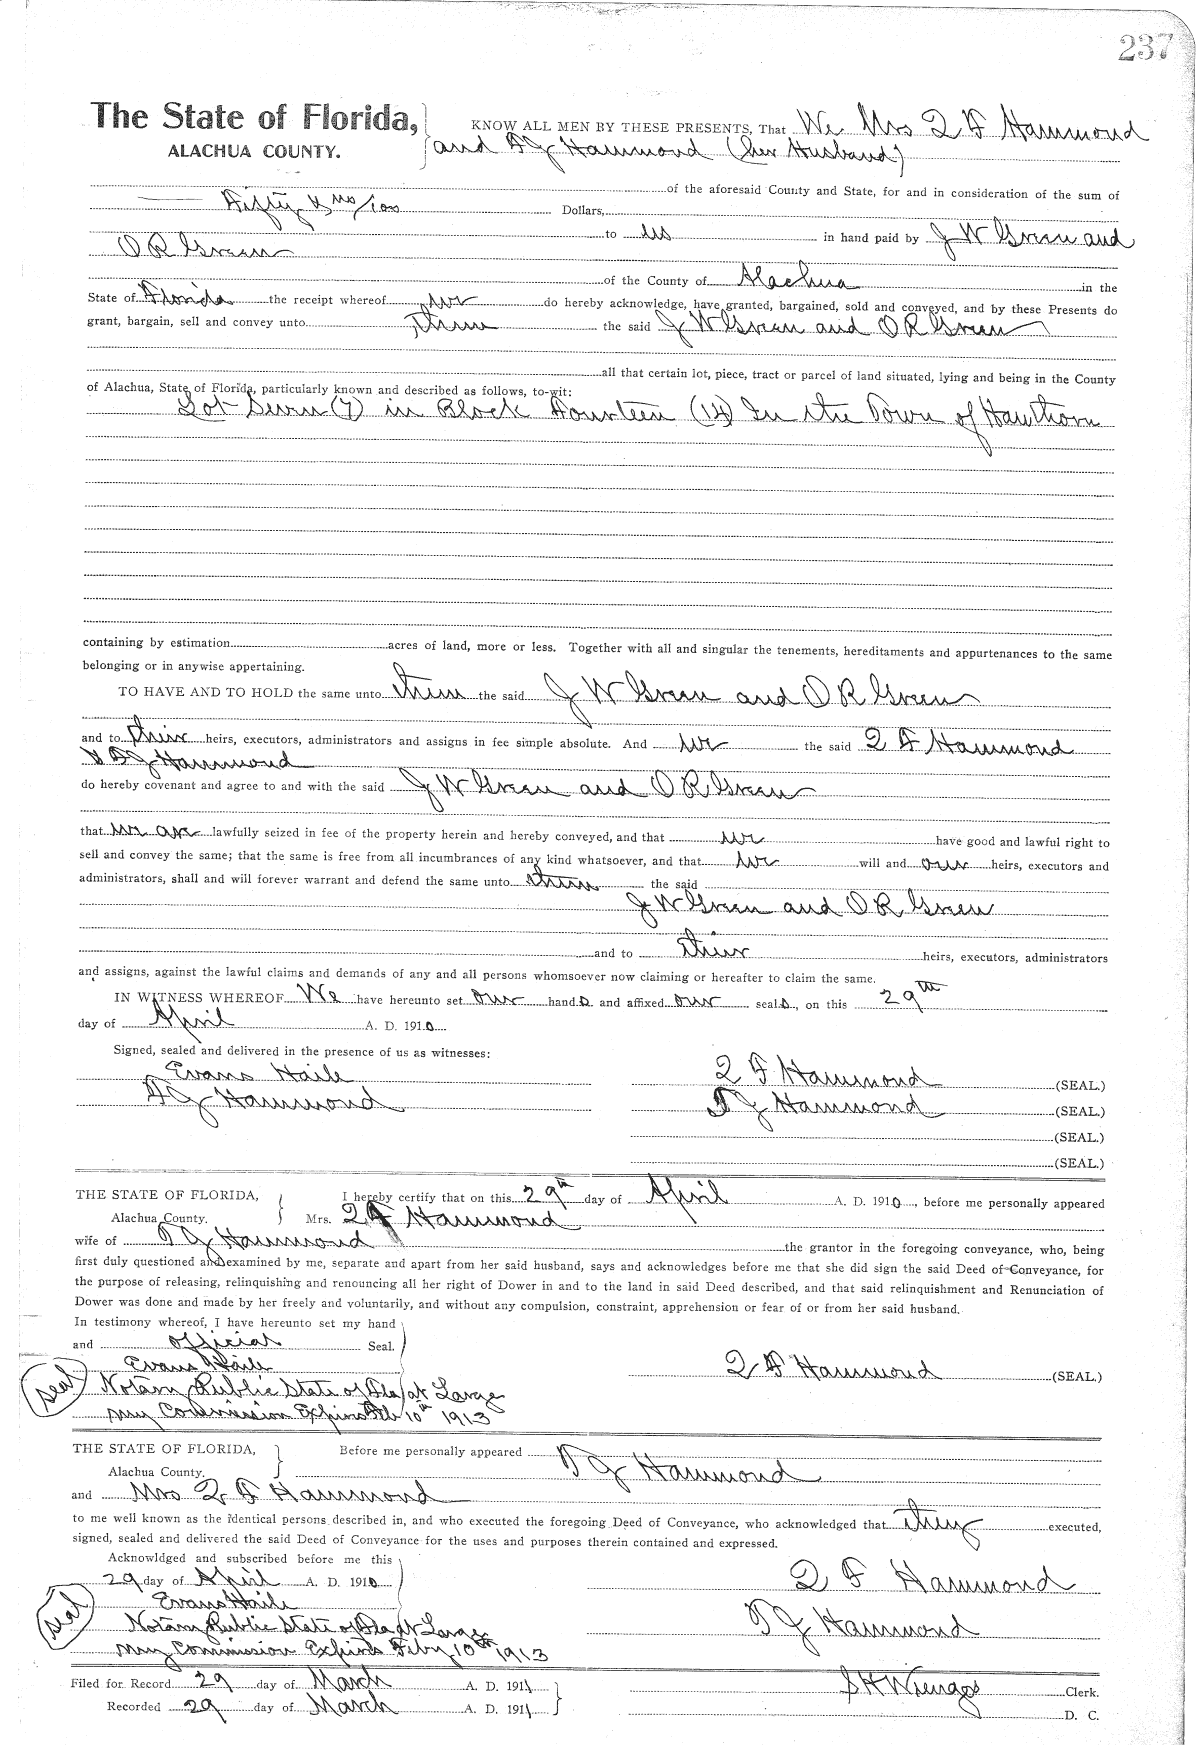 237
The State of Florida,
ALACHUA COUNTY.
KNOW ALL MEN BY THESE PRESENTS, That We Mrs Q F Hammond
and F J Hammond (her Husband)
of the aforesaid County and State, for and in consideration of the sum of
Fifty & no/100 Dollars,
to us in hand paid by J W Green and
O R Green
of the County of Alachua in the
State of Florida the receipt whereof we do hereby acknowledge, have granted, bargained, sold and conveyed, and by these Presents do
grant, bargain, sell and convey unto them the said J W Green and O R Green
all that certain lot, piece, tract or parcel of land situated, lying and being in the County
of Alachua, State of Florida, particularly known and described as follows, to-wit:
Lot Seven (7) in Block Fourteen (14) In the Town of Hawthorn
containing by estimation acres of land, more or less. Together with all and singular the tenements, hereditaments and appurtenances to the same
belonging or in anywise appertaining.
TO HAVE AND TO HOLD the same unto them the said J W Green and O R Green
and to their heirs, executors, administrators and assigns in fee simple absolute. And we the said Q F Hammond
& F J Hammond
do hereby covenant and agree to and with the said J W Green and O R Green
that we are lawfully seized in fee of the property herein and hereby conveyed, and that we have good and lawful right to
sell and convey the same; that the same is free from all incumbrances of any kind whatsoever, and that we will and our heirs, executors and
administrators, shall and will forever warrant and defend the same unto them the said
J W Green and O R Green
and to their heirs, executors, administrators
and assigns, against the lawful claims and demands of any and all persons whomsoever now claiming or hereafter to claim the same.
IN WITNESS WHEREOF We have hereunto set our hands and affixed our seals, on this 29th
day of April A. D. 1910
Signed, sealed and delivered in the presence of us as witnesses:
Evans Haile Q F Hammond (SEAL.)
F J Hammond T J Hammond (SEAL.)
(SEAL.)
(SEAL.)
THE STATE OF FLORIDA, I hereby certify that on this 29th day of April A. D. 1910, before me personally appeared
Alachua County. Mrs. Q F Hammond
wife of T J Hammond the grantor in the foregoing conveyance, who, being
first duly questioned and examined by me, separate and apart from her said husband, says and acknowledges before me that she did sign the said Deed of Conveyance, for
the purpose of releasing, relinquishing and renouncing all her right of Dower in and to the land in said Deed described, and that said relinquishment and Renunciation of
Dower was done and made by her freely and voluntarily, and without any compulsion, constraint, apprehension or fear of or from her said husband.
In testimony whereof, I have hereunto set my hand
and official Seal.
Evans Haile Q F Hammond (SEAL.)
seal Notary Public State of Fla at Large
my Commission Expires Feb 10th 1913
THE STATE OF FLORIDA, Before me personally appeared T J Hammond
Alachua County.
and Mrs Q F Hammond
to me well known as the identical persons described in, and who executed the foregoing Deed of Conveyance, who acknowledged that they executed,
signed, sealed and delivered the said Deed of Conveyance for the uses and purposes therein contained and expressed.
Acknowldged and subscribed before me this
29 day of April A. D. 1910 Q F Hammond
Evans Haile
seal Notary Public State of Fla at Large T J Hammond
my Commission Expires Feby 10th 1913
Filed for Record 29 day of March A. D. 1911 S H Wienges Clerk.
Recorded 29 day of March A. D. 1911 D. C.